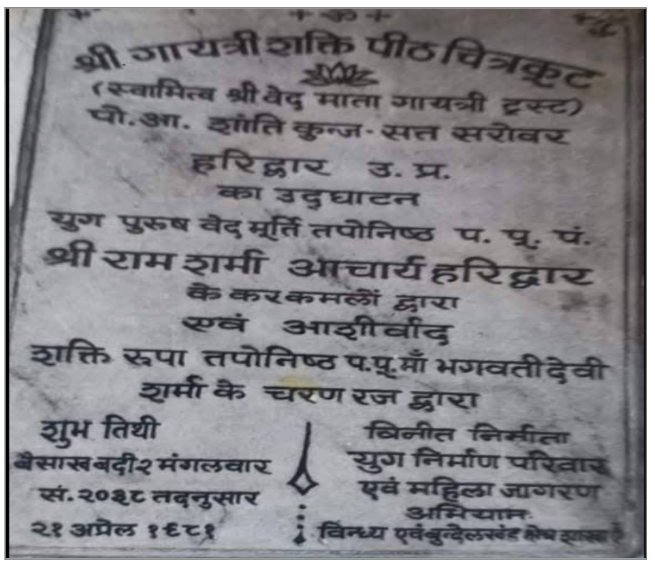 ॐ
श्री गायत्री शक्ति पीठ चित्रकूट
(स्वामित्व श्री वेद माता गायत्री ट्रस्ट)
पो.आ. शांति कुन्ज-सत्त सरोवर
हरिद्वार उ.प्र.
का उद्घाटन
युग पुरुष वेद मूर्ति तपोनिष्ठ प. पू. पं.
श्री राम शर्मा आचार्य हरिद्वार
के कर कमलों द्वारा
एवं आशीर्वाद
शक्ति रूपा तपोनिष्ठ प.पू. माँ भगवती देवी
शर्मा के चरण रज द्वारा
शुभ तिथी
बैसाख बदी २ मंगलवार
सं. २०३८ तदनुसार
२१ अप्रेल १९८१
विनीत निर्माता
युग निर्माण परिवार
एवं महिला जागरण
अभियान
विन्ध्य एवं बुन्देलखंड क्षेत्र